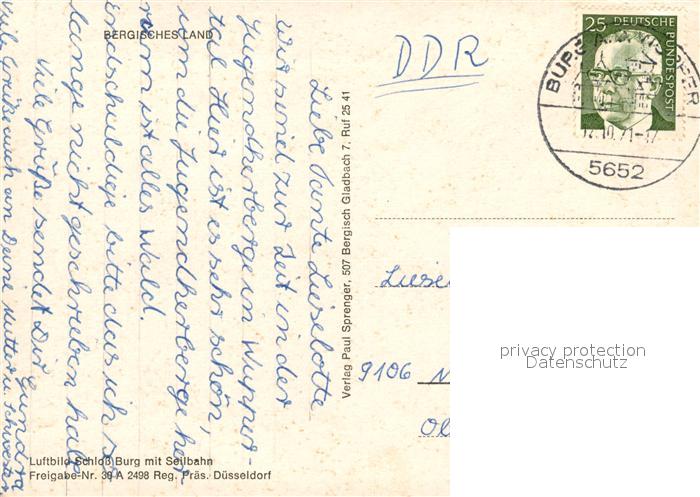 BERGISCHES LAND
Liebe Tante Lieselotte
Wir sind zur Zeit in der
Jugendherberge in Wupper-
tal Hier ist es sehr schön,
um die Jugendherberge her-
rum ist alles Wald.
entschuldige bitte das ich so
lange nicht geschrieben habe
Viele Grüße sendet Dir
Gundra
Viele Grüße auch an Deine Mutter u. Schwester
Luftbild Schloß Burg mit Seilbahn
Freigabe-Nr. 39 A 2498 Reg. Präs. Düsseldorf
Verlag Paul Sprenger, 507 Bergisch Gladbach 7, Ruf 25 41
DDR
25 DEUTSCHE
BUNDESPOST
BURG A.D. WUPPER
10.71-17
5652
9106
privacy protection
Datenschutz